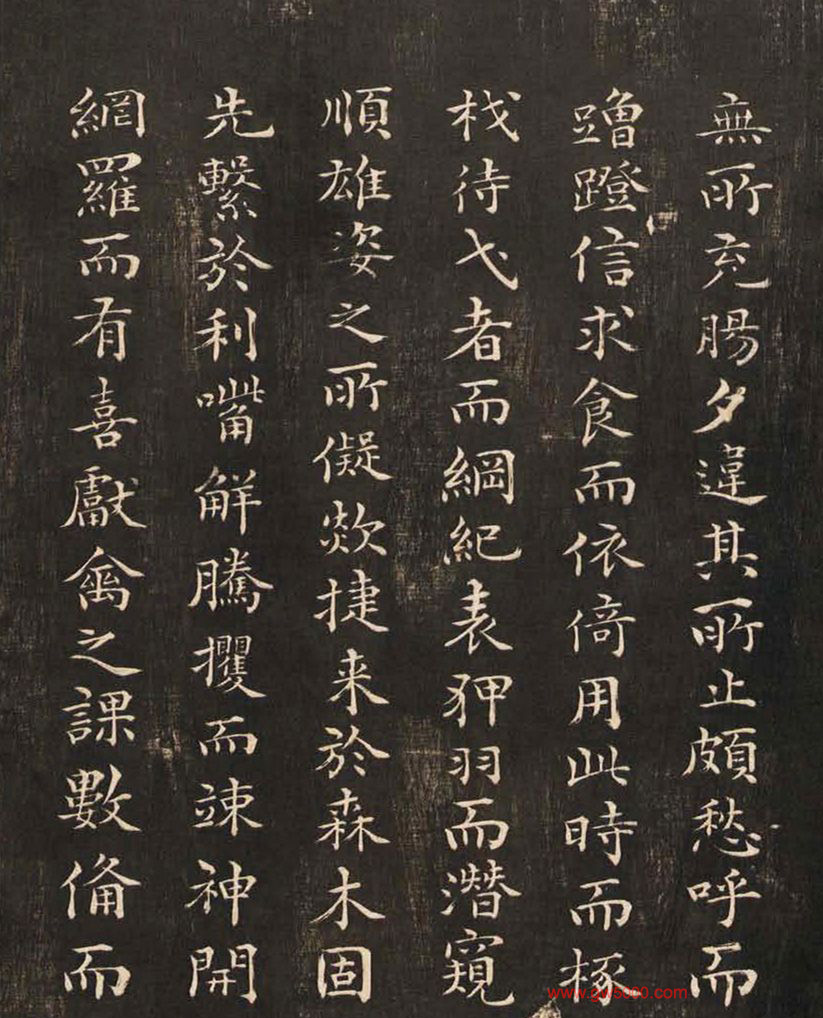 無所充腸夕違其所止頗愁呼而
蹭蹬信求食而依倚用此時而椓
杙待弋者而綱紀表狎羽而潛窺
順雄姿之所儗欻捷来於森木固
先繫於利嘴解騰攫而竦神開
網羅而有喜獻禽之課數俻而
www.gw5000.com